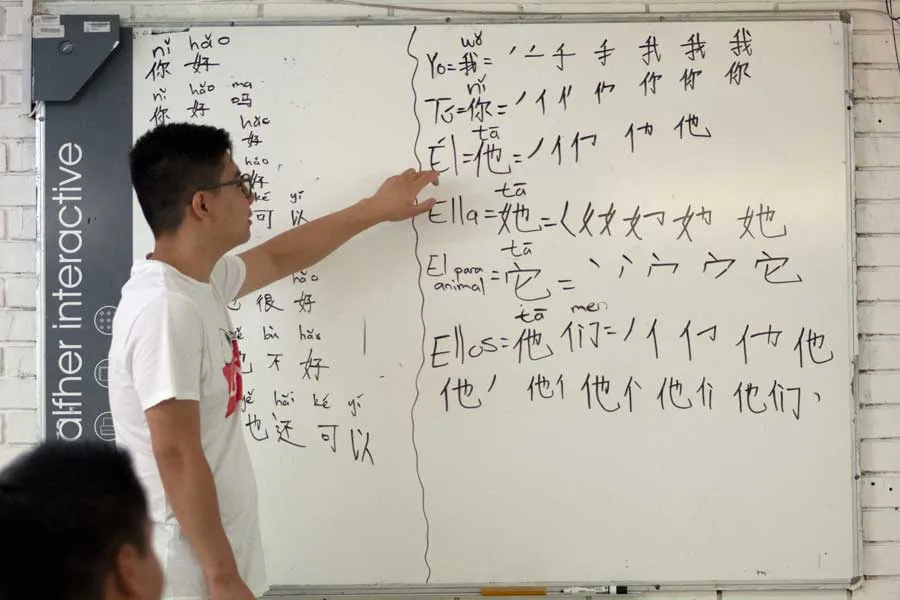 alfher interactive
nǐ hǎo
你 好
nǐ hǎo ma
你 好 吗
hǎo
好
hǎo
好
kě yǐ
可 以
hǎo
很 好
bù hǎo
不 好
yě hái kě yǐ
也 还 可 以
wǒ
Yo=我= ノ 二 手 我 我 我
nǐ
Tú=你= ノ 亻 你 你 你
tā
Él=他= ノ 亻 他
tā
Ella=她=く 她 她
tā
El para animal=它= 丶 宀 它
tā men
Ellos=他 们= ノ 亻 他
他 他 他 他 他们